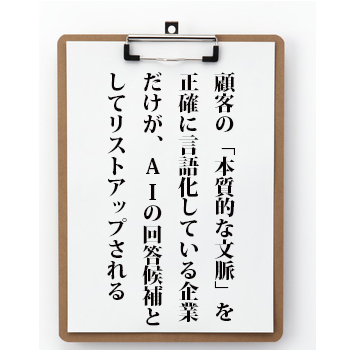 顧客の「本質的な文脈」を
正確に言語化している企業
だけが、ＡＩの回答候補と
してリストアップされる